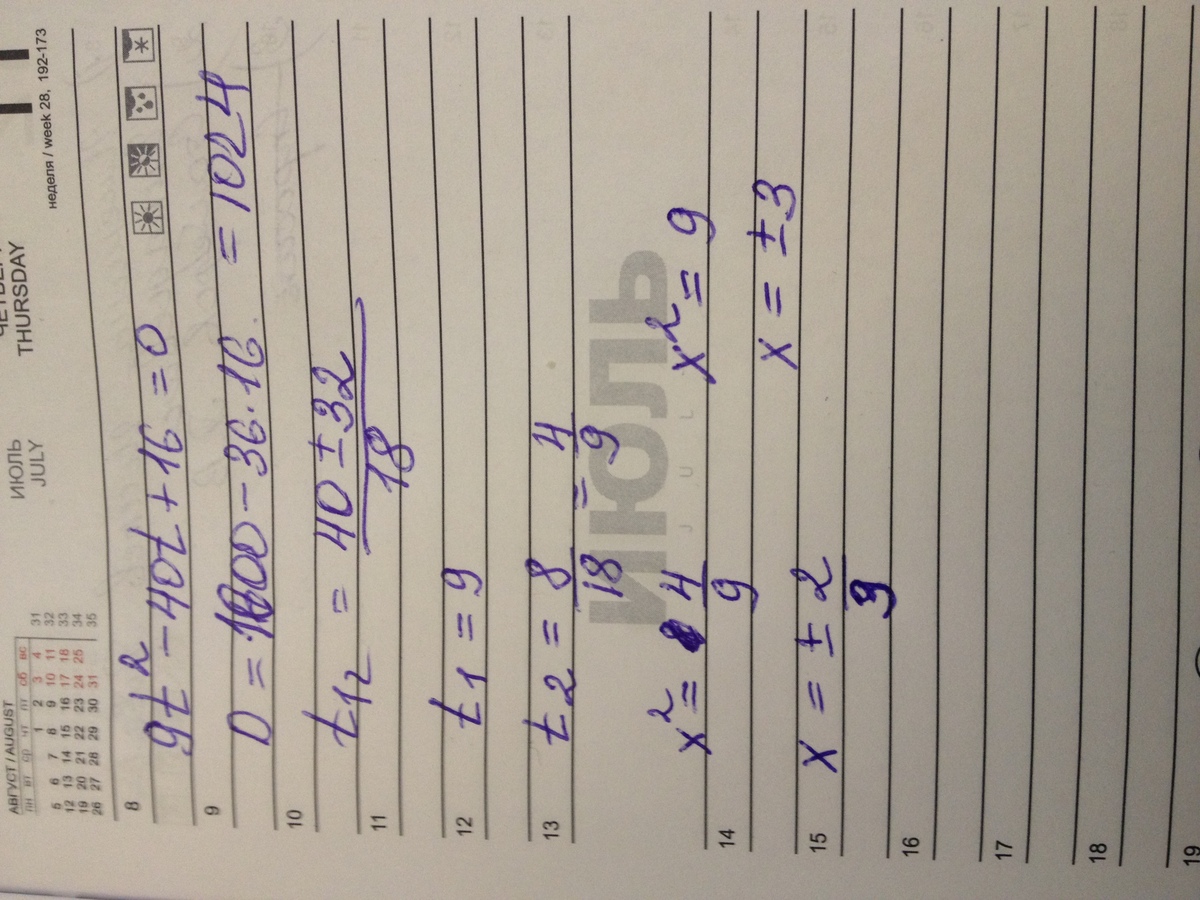 АВГУСТ / AUGUST
пн вт ср чт пт сб вс
1 2 3 4 31
5 6 7 8 9 10 11 32
12 13 14 15 16 17 18 33
19 20 21 22 23 24 25 34
26 27 28 29 30 31 35
ИЮЛЬ
JULY
THURSDAY
неделя / week 28, 192-173
8
9t² - 40t + 16 = 0
9
D = 1600 - 36·16 = 1024
10
t12 = 40 ± 32
18
11
12
t1 = 9
13
t2 = 8 = 4
18 9
ИЮЛЬ
J U L
x² = 4 x² = 9
9
14
x = ±3
15
x = ± 2
3
16
17
18
19